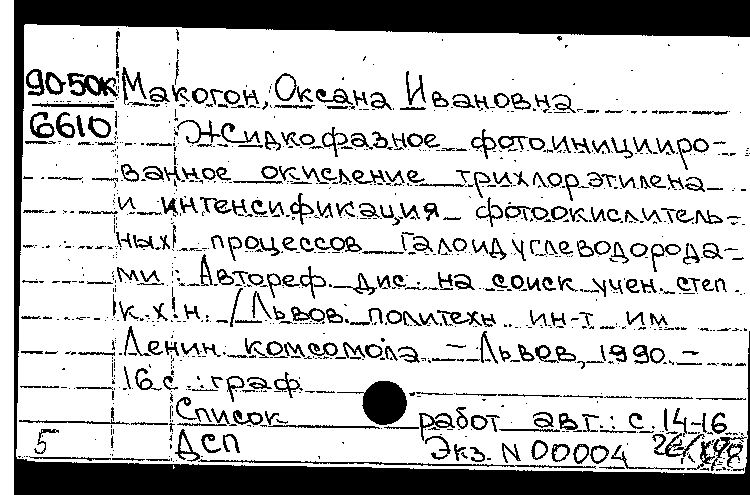 90-50к Макогон, Оксана Ивановна
6610 Жидкофазное фотоиницииро-
ванное окисление трихлорэтилена
и интенсификация фотоокислитель-
ных процессов галоидуглеводорода-
ми : Автореф. дис. на соиск. учен. степ.
к.х.н. / Львов. политехн. ин-т им
Ленин. комсомола. - Львов, 1990. -
16 с. : граф
Список работ авт.: с. 14-16
5 ДСП Экз. N 00004